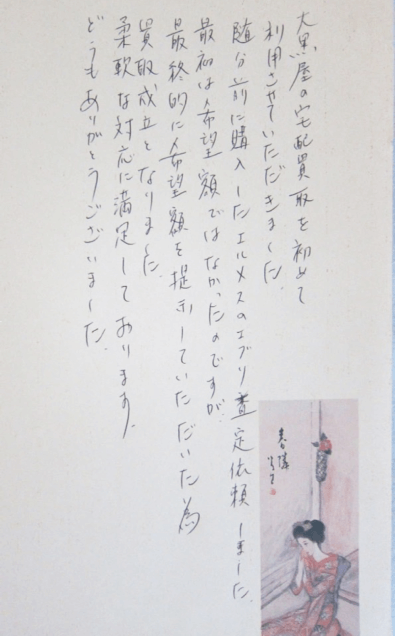 大黒屋の宅配買取を初めて
利用させていただきました.
随分前に購入したエルメスのエブリ査定依頼しました.
最初は希望額ではなかったのですが
最終的に希望額を提示していただいた為
買取成立となりました.
柔軟な対応に満足しております.
どうもありがとうございました.